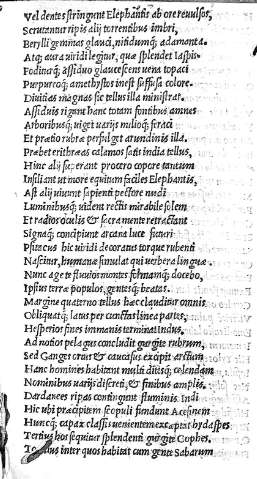 Vel dentes stringunt Elephantis ab ore reuulsos,
Scrutantur ripis alij torrentibus imbri,
Berylli gemmas glauci, nitidumq; adamanta.
Atq; aura uiridi legitur, quæ splendet Iaspis.
Foditurq; assiduo glaucescens uena topaci
Purpureoq; amethystos inest suffusa colore.
Diuitias magnas sic tellus illa ministrat.
Assiduis rigunt hanc totam fontibus amnes
Arboribusq; uiget uarijs miliiq; feraci
Et pratio rubræ perfulget arundinis illa.
Præbet erithræas calamos satis india tellus,
Hinc alij ferant procero corpore tantum
Insiliant ut more equitum faciles Elephantis,
Ast alij uiuunt sapienti pectore nudi
Luminibusq; uident rectis mirabile solem
Et radios oculis & sacra mente retractant
Signaq; concipiunt arcana luce futuri
Psitacus hic uiridi decoratus torque rubenti
Nascitur, humanæ simulat qui uerba linguæ.
Nunc age te fluuios montes formamq; docebo,
Ipsius terræ populos, gentesq; beatas.
Margine quaterno tellus hæc clauditur omnis
Obliquatq; latus per cunctas linea partes,
Hesperior fines immanis terminat Indus,
Ad notios pelagus concludit gurgite rubrum,
Sed Ganges ortus & caucasus excipit arctum
Hanc homines habitant multi ditisq; colendam
Nominibus uarijs discreti, & finibus amplis.
Dardanees ripas contingunt fluminis Indi
Hic ubi præcipitem scopuli fundunt Acesinem
Huncq; capax classis uenientem excapit hydaspes
Tertius hos sequitur splendenti gurgite Cophes.
inter quos habitat cum gente Sabarum